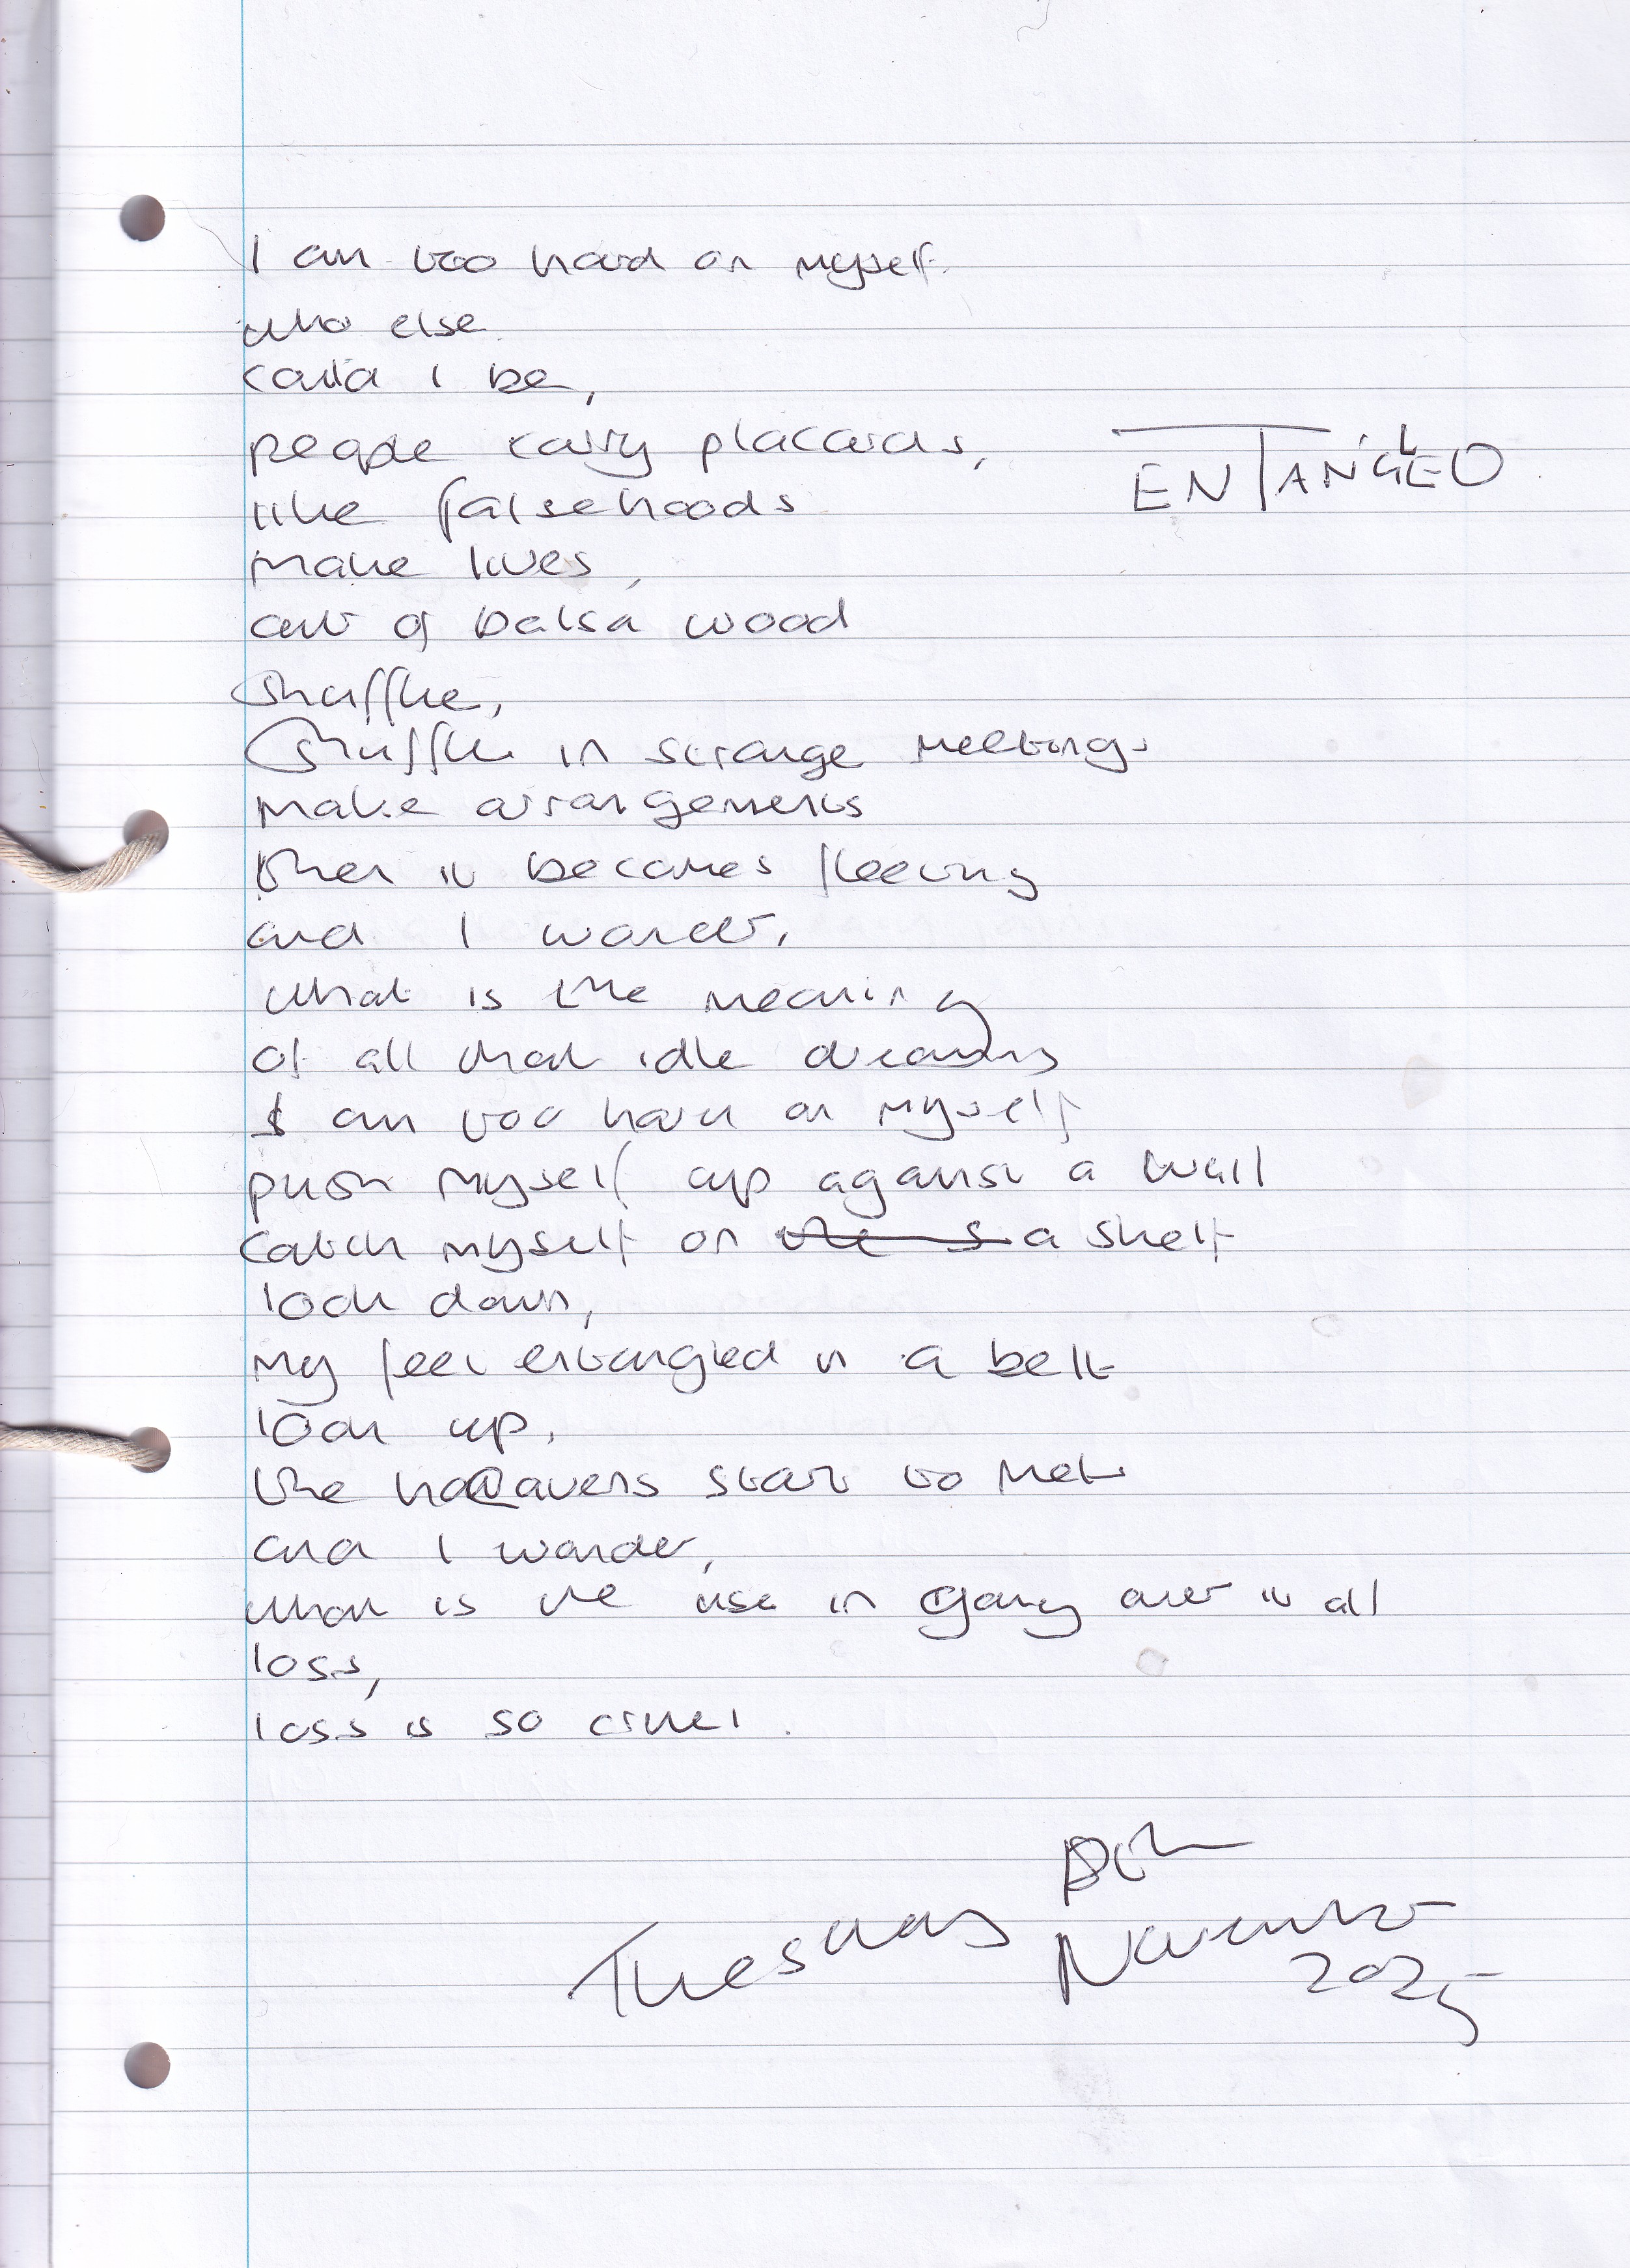 I am too hard on myself.
who else
could I be,
people carry placards,
ENTANGLED
like falsehoods
make lives,
out of balsa wood
shuffle,
shuffle in strange meetings
make arrangements
then it becomes fleeting
and I wonder,
what is the meaning
of all that idle dreaming
I am too hard on myself
push myself up against a wall
catch myself on the s a shelf
look down,
my feet entangled in a belt
look up,
the heavens start to melt
and I wonder,
what is the use in going over it all
loss,
loss is so cruel.
Tuesday
November
2025